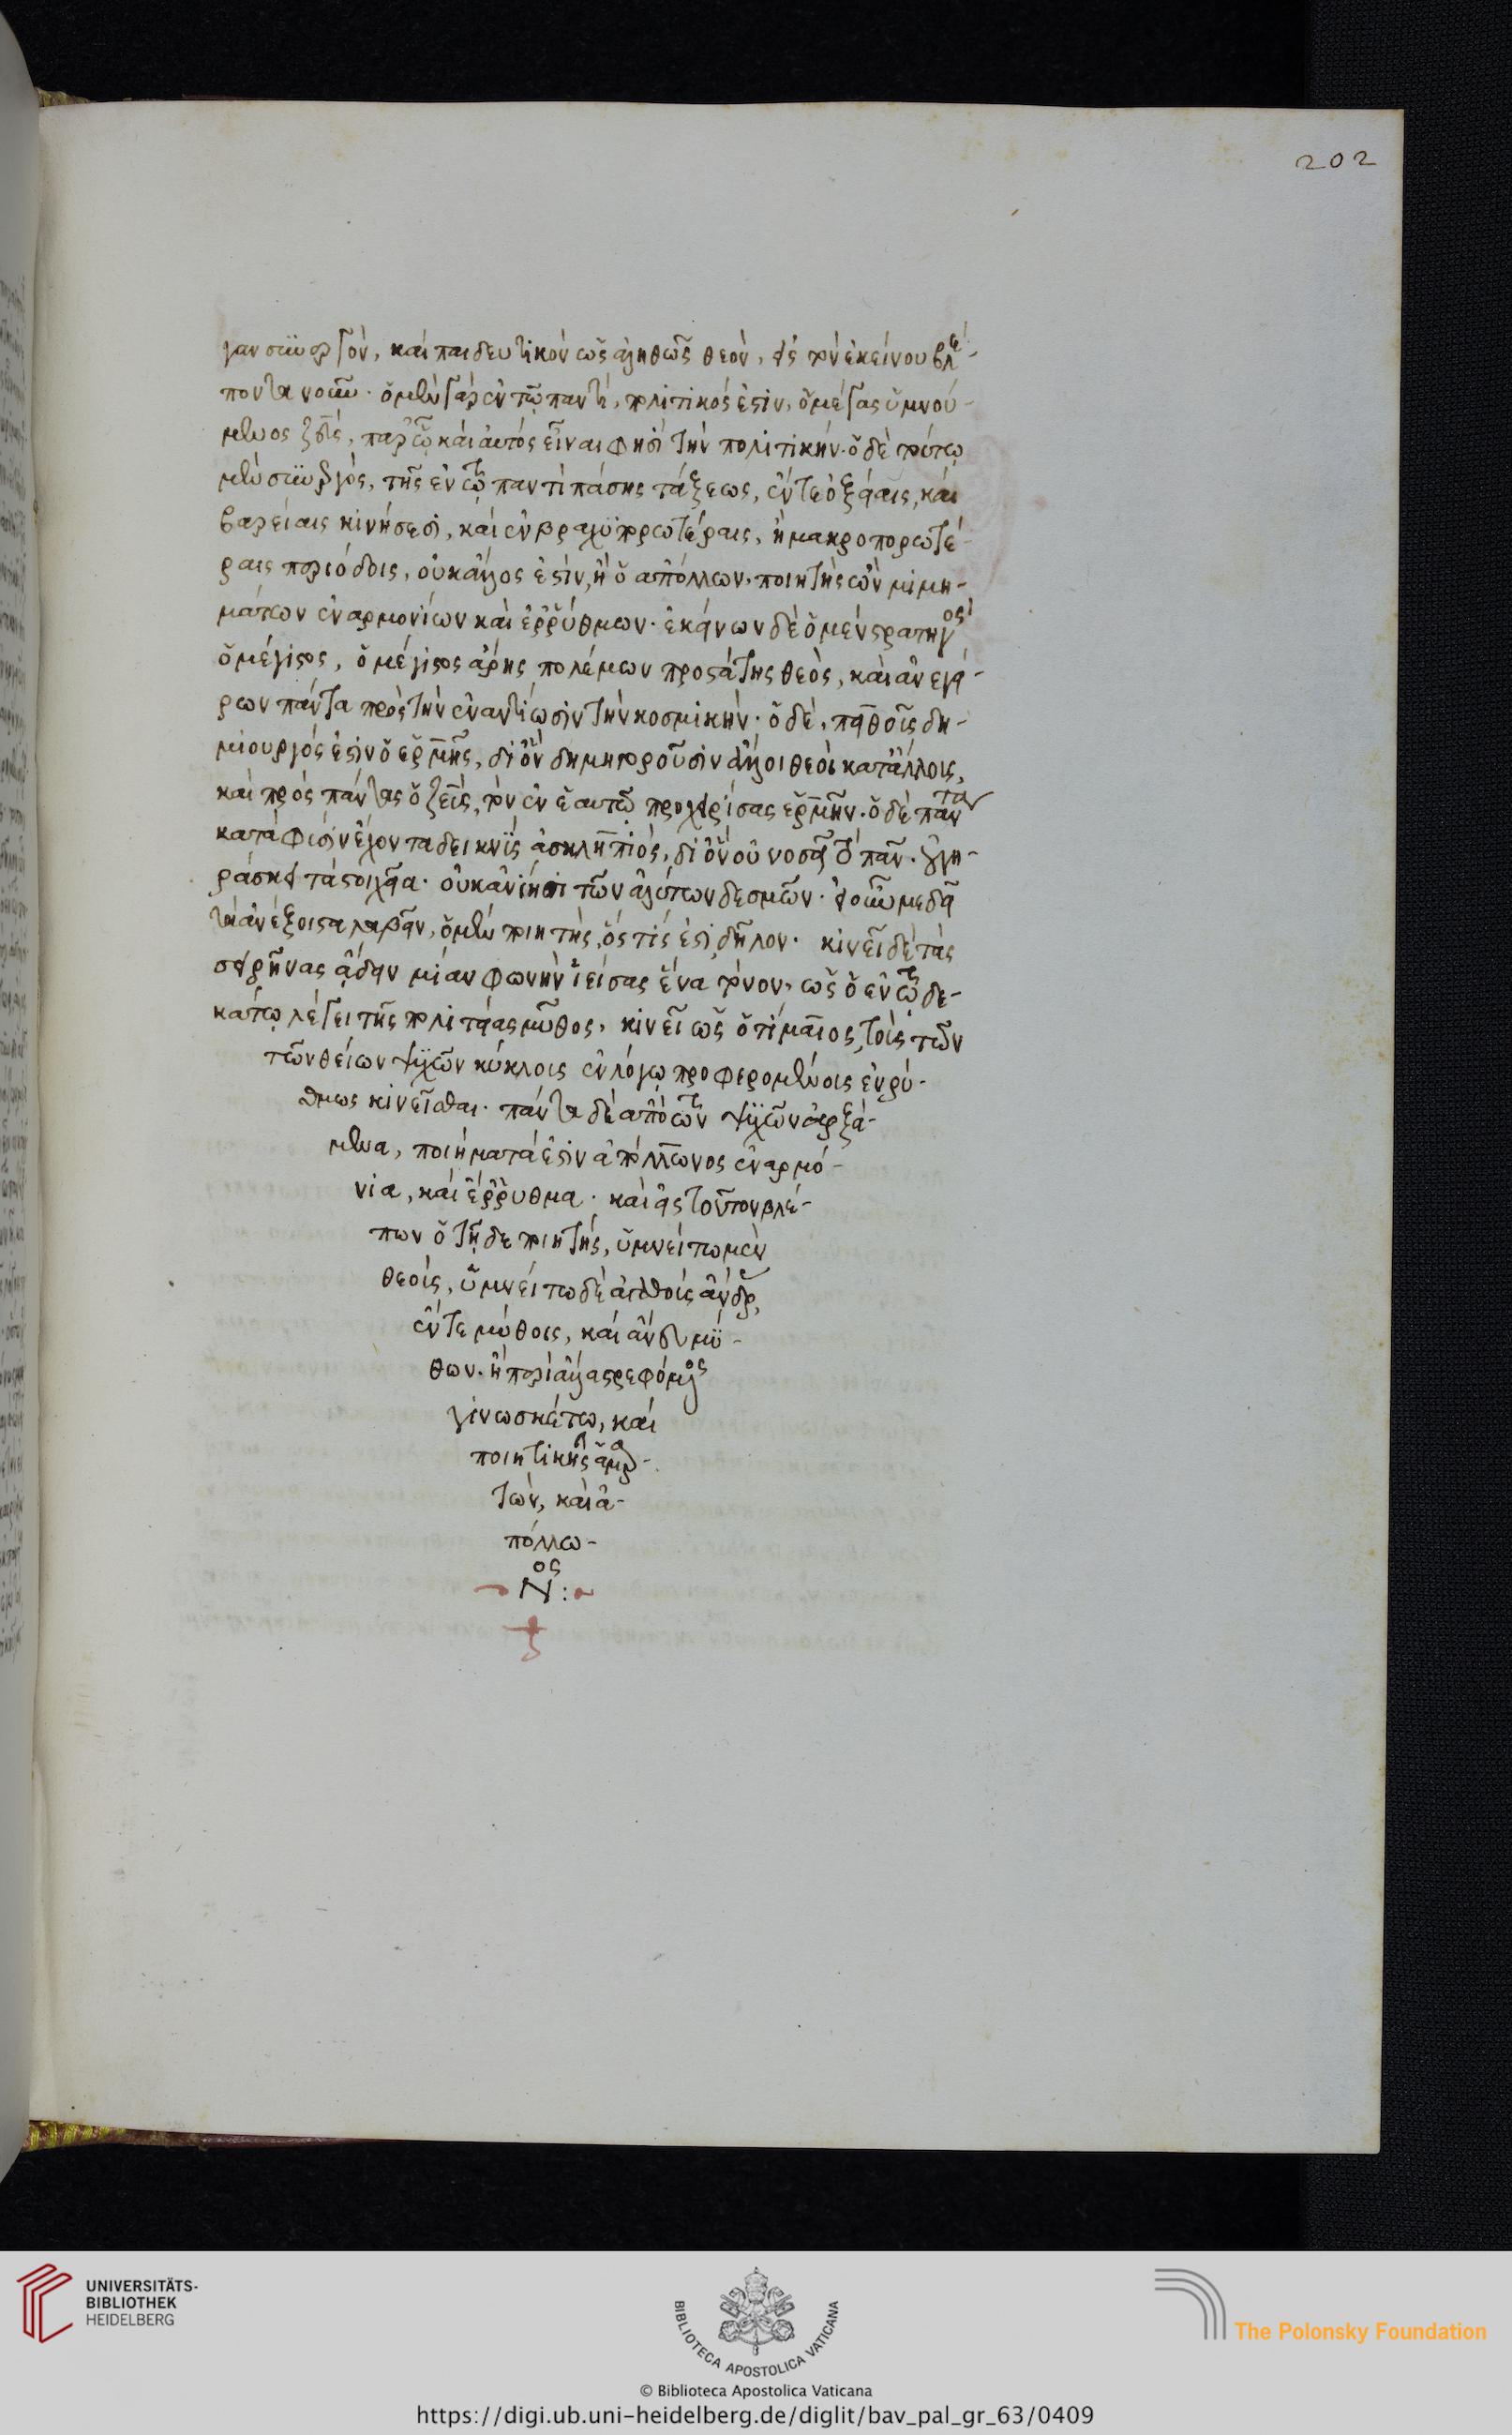 202
γαν συνεργὸν, καὶ παιδευτικὸν ὡς ἀληθῶς θεὸν, εἰς τὸν ἐκείνου βλέ-
ποντα νοῦν. ὁ μὲν γὰρ ἐν τῷ παντὶ, πολιτικός ἐστιν, ὁ μέγας ὑμνού-
μενος ζεὺς, παρ' ᾧ καὶ αὐτὸς εἶναι φησὶ τὴν πολιτικήν. ὁ δὲ τούτῳ
μὲν συνεργὸς, τῆς ἐν τῷ παντὶ πάσης τάξεως, ἔν τε ὀξείαις, καὶ
βαρείαις κινήσεσι, καὶ ἐν βραχυπορωτέραις, ἢ μακροπορωτέ-
ραις περιόδοις, οὐκ ἄλλος ἐστὶν, ἢ ὁ ἀπόλλων. ποιητὴς ὢν μιμη-
μάτων ἐναρμονίων καὶ ἐρρύθμων. ἐκείνων δὲ ὁ μὲν στρατηγὸς
ὁ μέγιστος, ὁ μέγιστος ἄρης πολέμων προστάτης θεὸς, καὶ ἀνεγεί-
ρων πάντα πρὸς τὴν ἐναντίωσιν τὴν κοσμικήν. ὁ δὲ, πειθοῖς δη-
μιουργός ἐστιν ὁ ἑρμῆς, δι' ὃν δημηγοροῦσιν ἄλλοι θεοὶ κατ' ἄλλοις,
καὶ πρὸς πάντας ὁ ζεὺς, τὸν ἐν ἑαυτῷ προχειρίσας ἑρμῆν. ὁ δὲ πάντα
κατὰ φύσιν ἔχοντα δεικνὺς ἀσκληπιὸς, δι' ὃν οὐ νοσεῖ τὸ πᾶν. γη-
ράσκει τὰ στοιχεῖα. οὐκ ἀνίησι τῶν ἀλύτων δεσμῶν.
λαβεῖν, ὁ μὲν ποιητὴς, ὅστίς ἐστι, δῆλον. κινεῖ δὲ τὰς
σειρῆνας ᾄδειν μίαν φωνὴν ἱείσας ἕνα τόνον, ὡς ὁ ἐν τῷ δε-
κάτῳ λέγει τῆς πολιτείας μῦθος, κινεῖ ὡς ὁ τίμαιος, τοῖς τῶν
τῶν θείων ψυχῶν κύκλοις ἐν λόγῳ προφερομένοις ἐνρύ-
θμως κινεῖσθαι. πάντα δὲ ἀπὸ τῶν ψυχῶν ἀρξά-
μενα, ποιήματά ἐστιν ἀπόλλωνος ἐναρμό-
νια, καὶ ἔρρυθμα. καὶ εἰς τοῦτον βλέ-
πων ὁ τῇδε ποιητὴς, ὑμνείτω μὲν
θεοὺς, ὑμνείτω δὲ ἀγαθοὺς ἄνδρας,
ἔν τε μύθοις, καὶ ἄνευ μύ-
θων. ἢ περὶ ἄλλα στρεφόμενος
γινωσκέτω, καὶ
ποιητικῆς ἁμαρ-
τὼν, καὶ ἀ-
πόλλω-
Ν ος:~
© Biblioteca Apostolica Vaticana
UNIVERSITÄTS-
BIBLIOTHEK
HEIDELBERG
BIBLIOTECA APOSTOLICA VATICANA
The Polonsky Foundation
https://digi.ub.uni-heidelberg.de/diglit/bav_pal_gr_63/0409